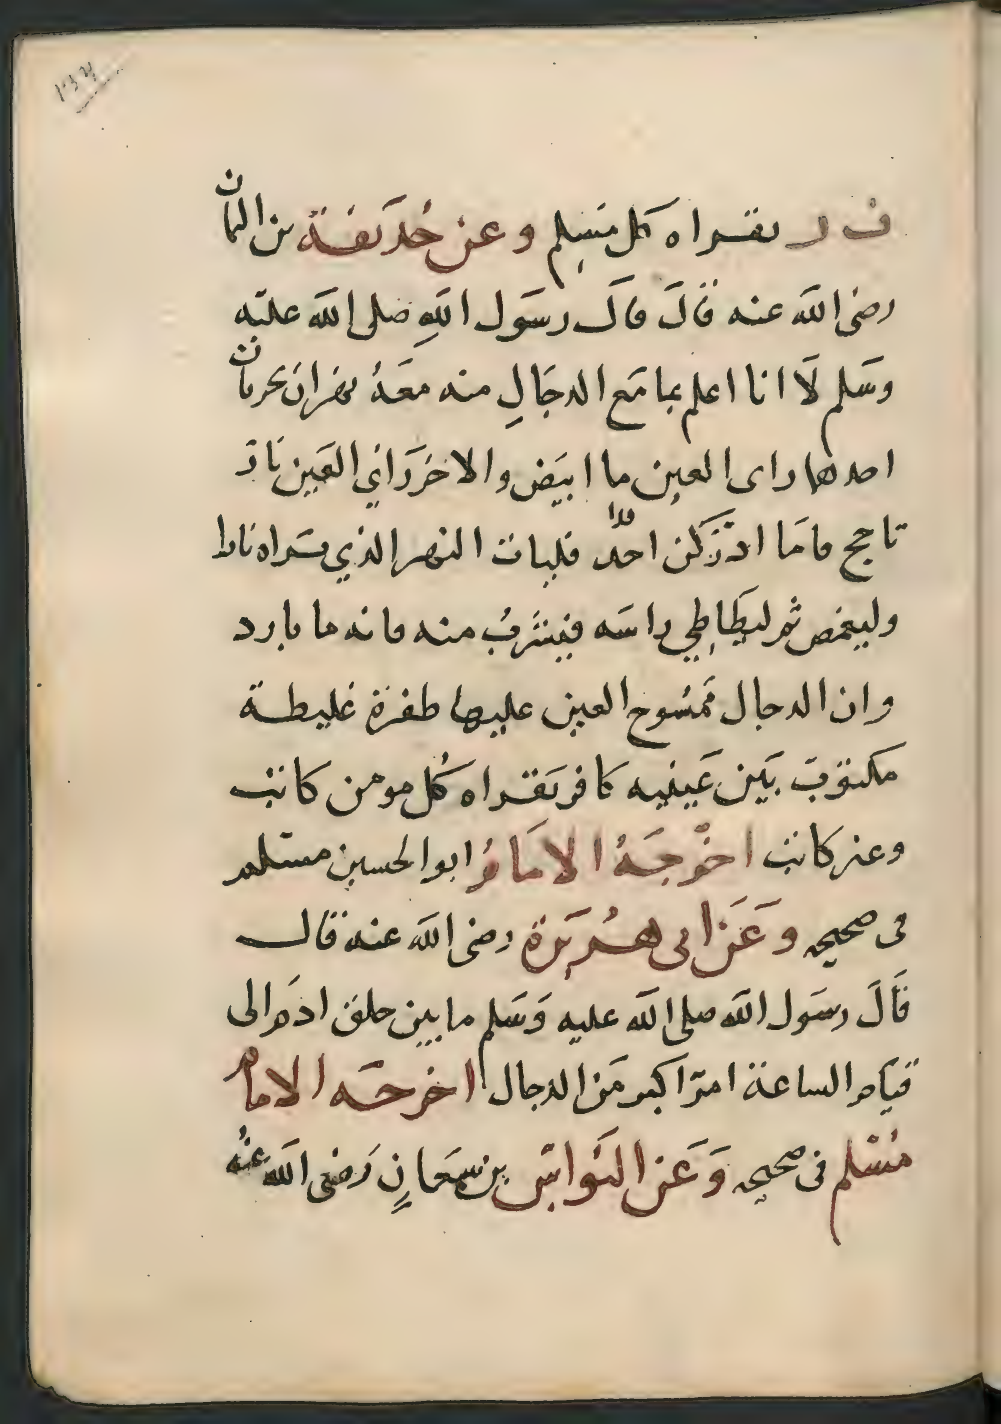 ف ر يقراه كل مسلم وعن حذيفة بن اليمان
رضى الله عنه قال قال رسول الله صلى الله عليه
وسلم لا انا اعلم بما مع الدجال منه معه نهران يجريان
احدهما راى العين ما ابيض والاخر راي العين نار
تاجج فاما ادركن احدا فليات النهر الذي يراه نارا
وليغمض ثم ليطاطي راسه فيشرب منه فانه ما بارد
وان الدجال ممسوح العين عليها ظفرة غليظة
مكتوب بين عينيه كافر يقراه كل مومن كاتب
وغير كاتب اخرجه الامام ابو الحسين مسلم
فى صحيحه وعن ابى هريرة رضى الله عنه قال
قال رسول الله صلى الله عليه وسلم ما بين خلق ادم الى
قيام الساعة امر اكبر من الدجال اخرجه الامام
مسلم فى صحيحه وعن النواس بن سمعان رضى الله عنه